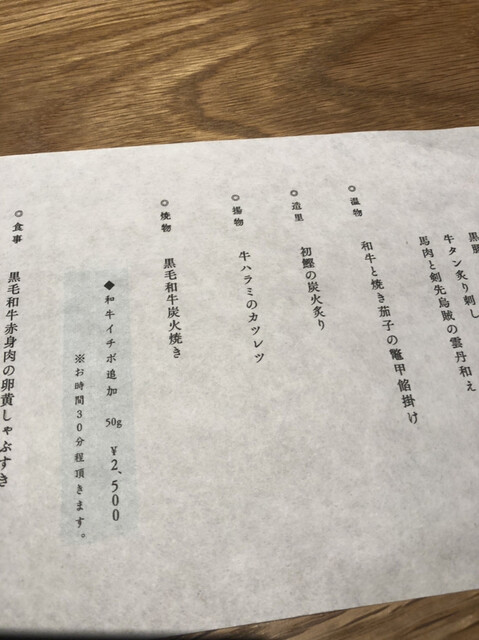 牛タン炙り刺し
馬肉と剣先烏賊の雲丹和え
◎温物
和牛と焼き茄子の鼈甲餡掛け
◎造里
初鰹の炭火炙り
◎揚物
牛ハラミのカツレツ
◎焼物
黒毛和牛炭火焼き
◆和牛イチボ追加 50g ¥2,500
※お時間30分程頂きます。
◎食事
黒毛和牛赤身肉の卵黄しゃぶすき